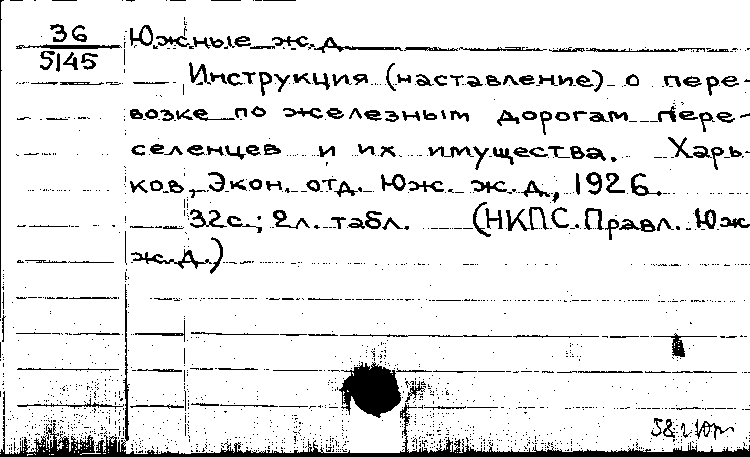 36
5145
Южные ж.д.
Инструкция (наставление) о пере-
возке по железным дорогам пере-
селенцев и их имущества. Харь-
ков, Экон. отд. Юж. ж.д., 1926.
32с.; 2л. табл. (НКПС. Правл. Юж
ж.д.)